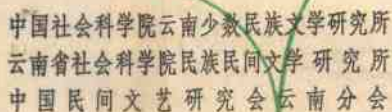 中国社会科学院云南少数民族文学研究所
云南省社会科学院民族民间文学研究所
中国民间文艺研究会云南分会